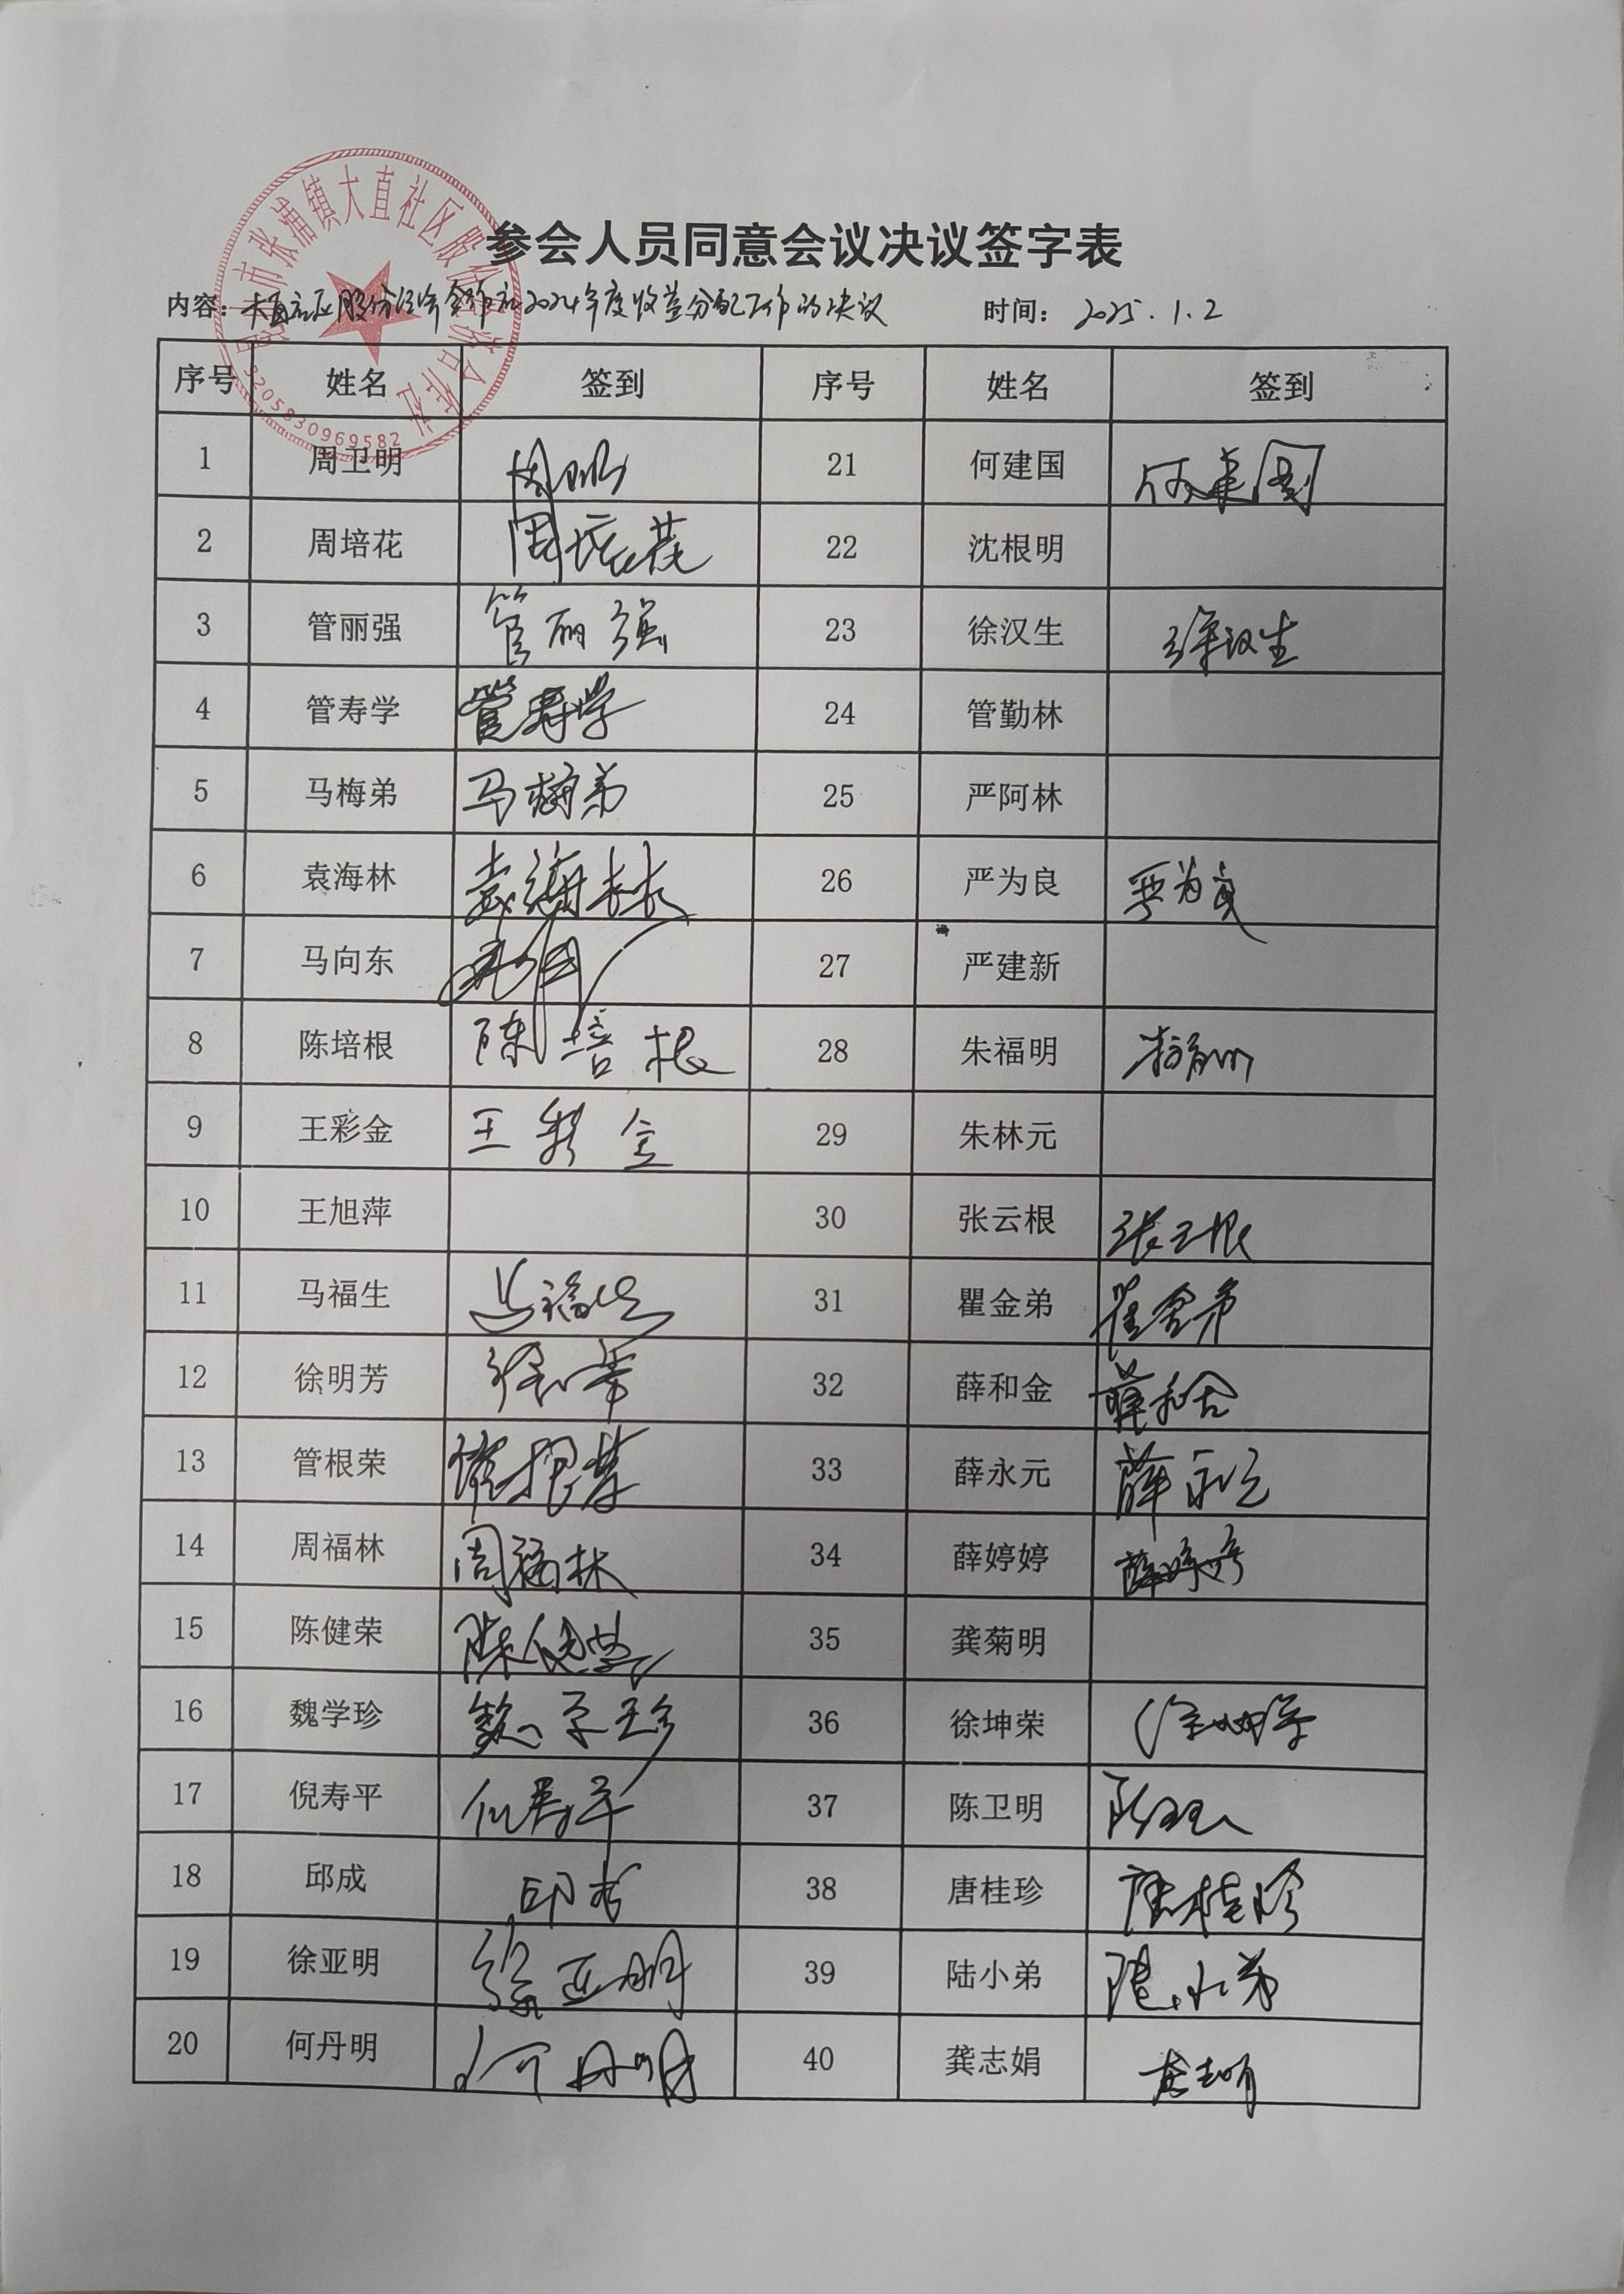 参会人员同意会议决议签字表
内容：大直社区股份经济合作社2024年度收益分配工作的决议 时间：2025.1.2
市张浦镇大直社区股份经济合作社
3205830969582
序号 姓名 签到 序号 姓名 签到
1 周卫明 21 何建国 何建国
2 周培花 周培花 22 沈根明
3 管丽强 管丽强 23 徐汉生 徐汉生
4 管寿学 管寿学 24 管勤林
5 马梅弟 马梅弟 25 严阿林
6 袁海林 袁海林 26 严为良 严为良
7 马向东 27 严建新
8 陈培根 陈培根 28 朱福明 朱福明
9 王彩金 王彩金 29 朱林元
10 王旭萍 30 张云根 张云根
11 马福生 马福生 31 瞿金弟 瞿金弟
12 徐明芳 32 薛和金 薛和金
13 管根荣 管根荣 33 薛永元 薛永元
14 周福林 周福林 34 薛婷婷 薛婷婷
15 陈健荣 陈健荣 35 龚菊明
16 魏学珍 魏学珍 36 徐坤荣 徐坤荣
17 倪寿平 倪寿平 37 陈卫明
18 邱成 邱成 38 唐桂珍 唐桂珍
19 徐亚明 徐亚明 39 陆小弟 陆小弟
20 何丹明 何丹明 40 龚志娟 龚志娟